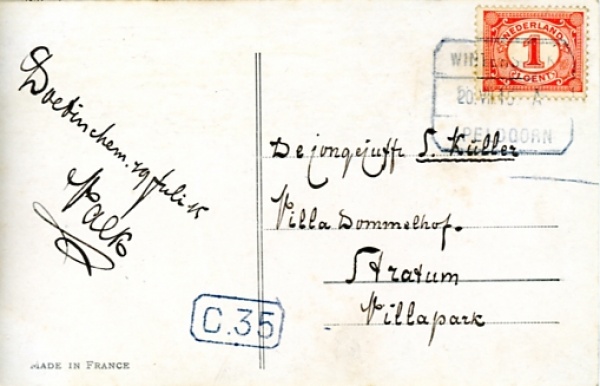 Doetinchem. 19 Juli 15
Valk
NEDERLAND
1
CENT
WINTE
20.VII.15 A
PELDOORN
De jongejuffr S. Küller
Villa Dommelhof.
Stratum
Villapark
C.35
MADE IN FRANCE